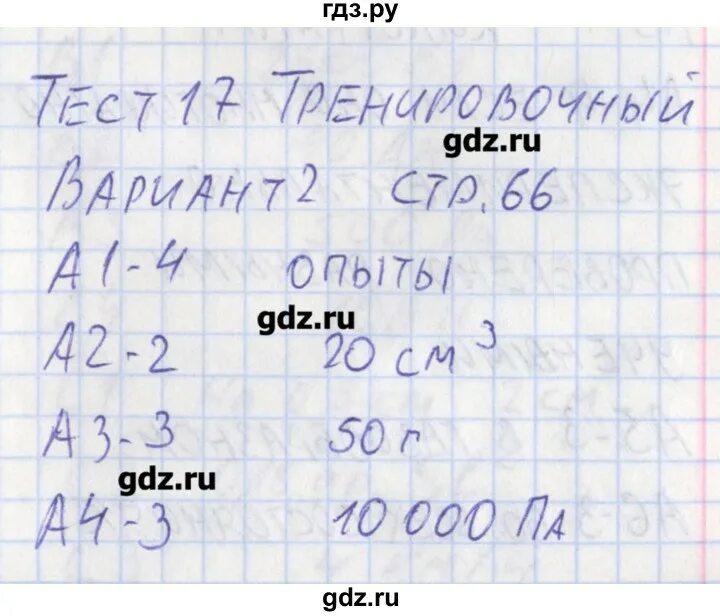 гдз.ру
ТЕСТ 17 ТРЕНИРОВОЧНЫЙ
gdz.ru
ВАРИАНТ 2 СТР. 66
А1-4 ОПЫТЫ
gdz.ru
А2-2 20 см³
А3-3 50 г
gdz.ru
А4-3 10 000 ПА
gdz.ru